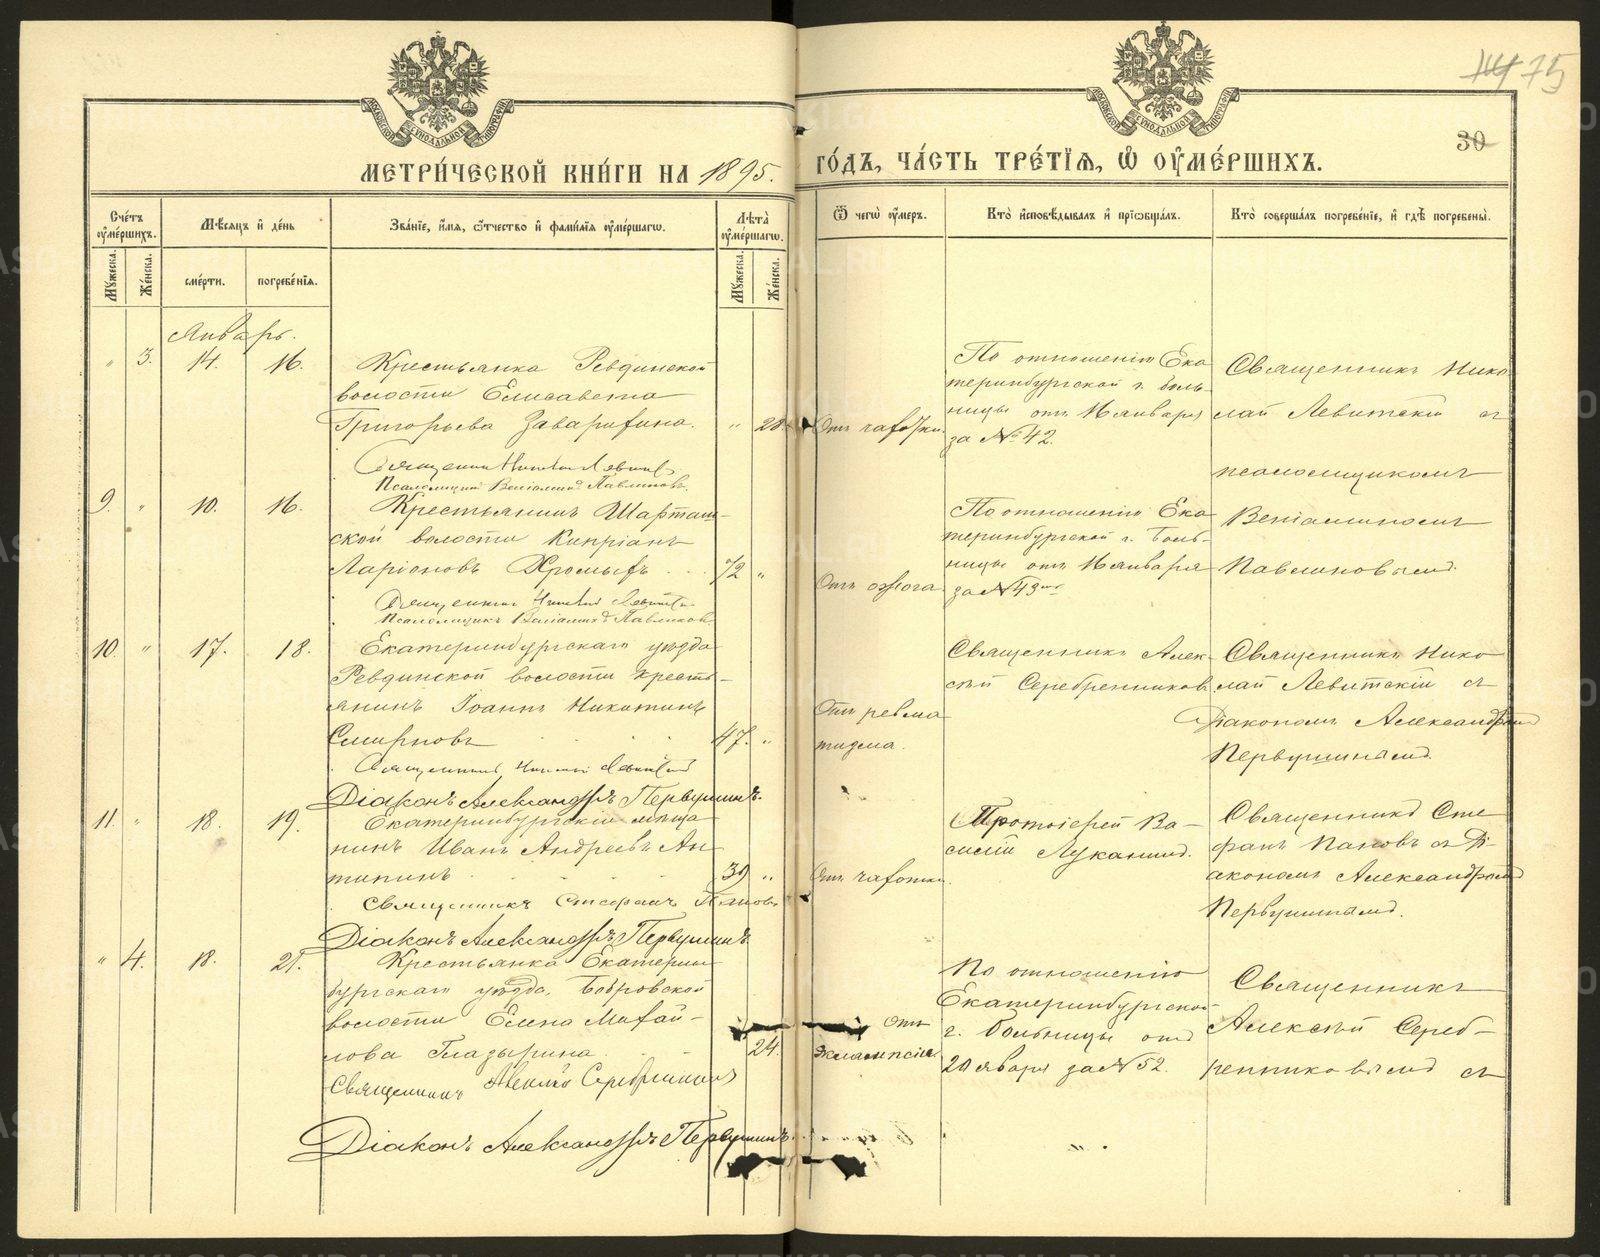 114 75
30
МЕТРИ́ЧЕСКОЙ КНИ́ГИ НА 1895.
ГО́ДЪ, ЧА́СТЬ ТРЕ́ТІѦ, Ѡ ОУМЕ́РШИХЪ.
Сче́тъ оуме́ршихъ.
Мужеска.
Же́нска.
Мѣ́сяцъ и҆ де́нь
сме́рти.
погребе́нїѧ.
Зва́нїе, и҆́мѧ, ѻ҆́тчество и҆ фами́лїѧ оуме́ршагѡ.
Лѣта̀ оуме́ршагѡ.
Мужеска.
Же́нска.
Ѿ чегѡ̀ оу́меръ.
Кто̀ и҆сповѣ́дывалъ и҆ прїѡбща́лъ.
Кто̀ соверша́лъ погребе́нїе, и҆ гдѣ̀ погребены̀.
Январь.
" 3. 14. 16.
Крестьянка Ревдинской
волости Елисавета
Григорьева Заварихина. " 28.
Священник Николай Левитскій
Псаломщикъ Веніаминъ Павлиновъ
Отъ чахотки.
По отношенію Ека
теринбургской г. боль
ницы отъ 16 января
за № 42.
Священникъ Нико
лай Левитскій съ
псаломщикомъ
9. " 10. 16.
Крестьянинъ Шарташ-
ской волости Кипріанъ
Ларіоновъ Хромыхъ . . . 72 "
Священникъ Николай Левитскій
Псаломщикъ Веніаминъ Павлиновъ
Отъ ожога.
По отношенію Ека
теринбургской г. Боль-
ницы отъ 16 января
за № 43
Веніаминомъ
Павлиновымъ.
10. " 17. 18.
Екатеринбургскаго уѣзда
Ревдинской волости кресть-
янинъ Іоаннъ Никитинъ
Смирновъ . . . . 47. "
Священникъ Николай Левитскій
Діаконъ Александръ Первушинъ.
Отъ ревма
тизма.
Священникъ Алек-
сѣй Серебренниковъ
Священникъ Нико
лай Левитскій съ
Діакономъ Александромъ
Первушинымъ.
11. " 18. 19.
Екатеринбургскій мѣща
нинъ Иванъ Андреевъ Ан
типинъ . . . . 39 "
Священникъ Стефанъ Пановъ
Діаконъ Александръ Первушинъ.
Отъ чахотки.
Протоіерей Ва-
силій Луканинъ.
Священникъ Сте
фанъ Пановъ съ Ді-
акономъ Александромъ
Первушинымъ.
" 4. 18. 21.
Крестьянка Екатерин
бургскаго уѣзда, Бобровской
волости Елена Михай-
лова Глазырина . . . 24.
Священникъ Алексій Серебренниковъ
Діаконъ Александръ Первушинъ.
Отъ
эклампсіи.
По отношенію
Екатеринбургской
г. больницы отъ
20 января за № 52.
Священникъ
Алексѣй Сереб-
ренниковымъ съ